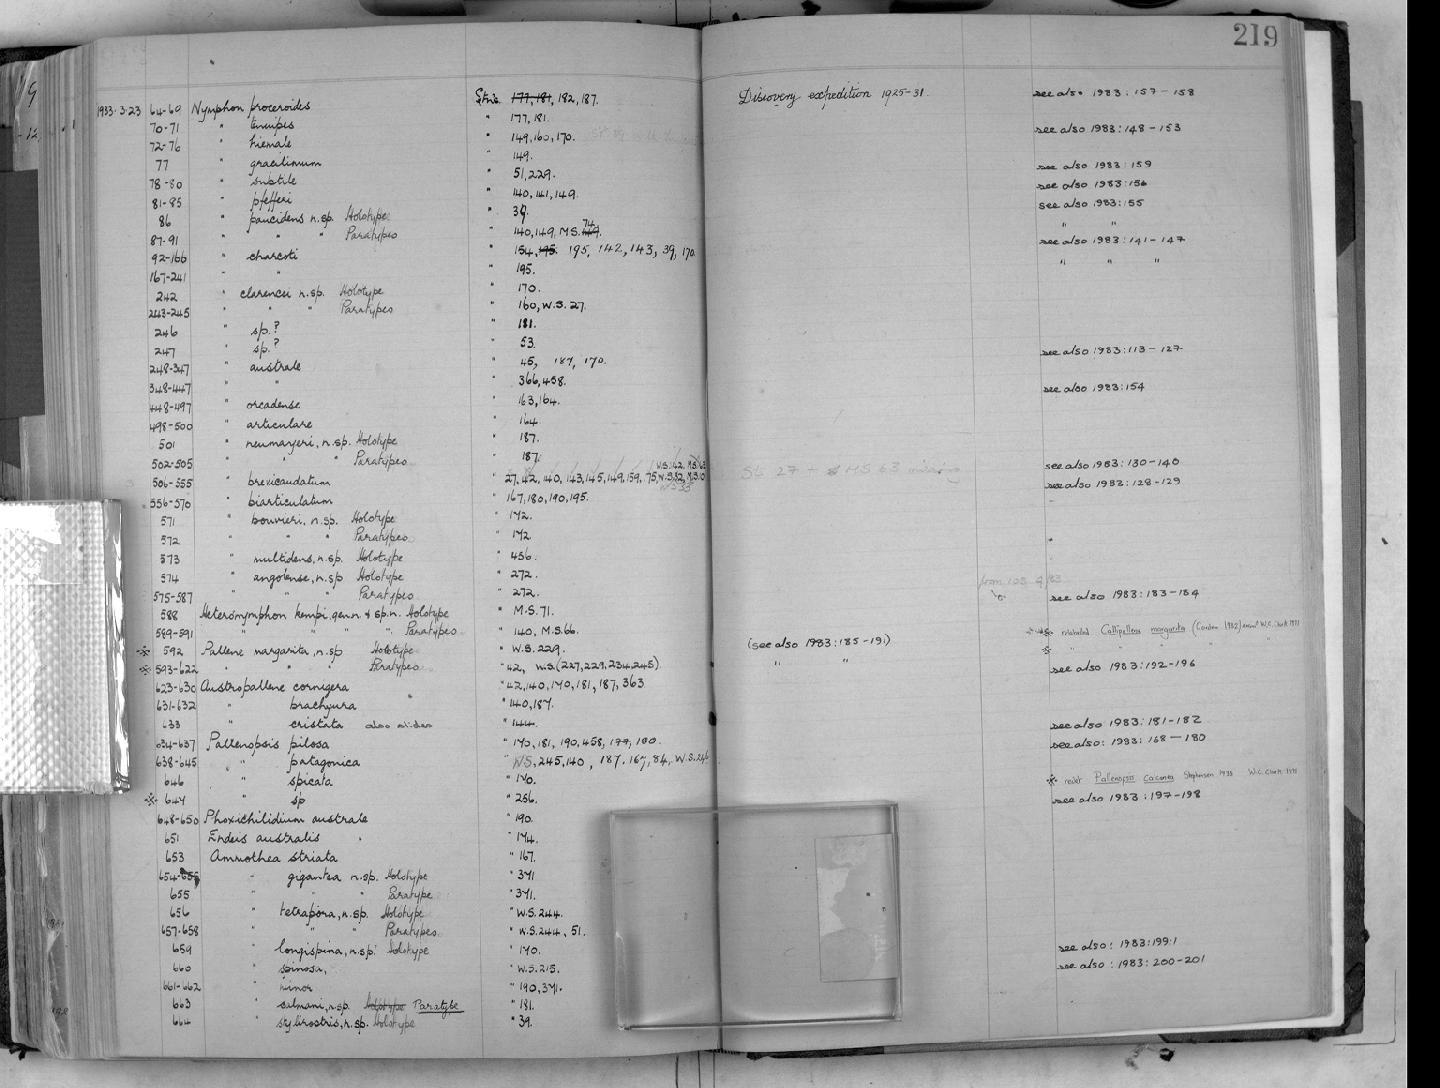 219
1933.3.23 64-69 Nymphon proceroides Stns. 177, 181, 182, 187. Discovery expedition 1925-31. see also 1983:157-158
70-71 " tenuipes " 177, 181.
72-76 " hiemale " 149, 160, 170. see also 1983:148-153
77 " gracilimum " 149.
78-80 " subtile " 51, 229. see also 1983:159
81-85 " pfefferi " 140, 141, 149. see also 1983:156
86 " paucidens n.sp. Holotype " 39. see also 1983:155
87-91 " " " Paratypes " 140, 149, M.S. 74. " "
92-166 " charcoti " 154, 195. 195, 142, 143, 39, 170. see also 1983:141-147
167-241 " " " 195. " " "
242 " clarencei n.sp. Holotype " 170.
243-245 " " " Paratypes " 160, W.S. 27.
246 " sp.? " 181.
247 " sp.? " 53.
248-347 " australe " 45, 187, 170. see also 1983:113-127
348-447 " " " 366, 458.
448-497 " orcadense " 163, 164. see also 1983:154
498-500 " articulare " 164
501 " neumayeri, n.sp. Holotype " 187.
502-505 " " " Paratypes " 187.
W.S. 42, M.S. 63
506-555 " brevicaudatum " 27, 42, 140, 143, 145, 149, 159, 175, St 27 + MS 63 missing see also 1983:130-140
556-570 " biarticulatum " 167, 180, 190, 195. see also 1983:128-129
571 " bouvieri, n.sp. Holotype " 172.
572 " " " Paratypes " 172.
573 " multidens, n.sp. Holotype " 456.
574 " angolense, n.sp Holotype " 272.
575-587 " " " Paratypes " 272. see also 1983:183-184
588 Heteronymphon kempi, gen.n. & sp.n. Holotype " M.S. 71.
589-591 " " " " Paratypes " 140, M.S. 66.
592 Pallene margarita, n.sp Holotype " W.S. 229. (see also 1983:185-191) relabeled Callipallene margarita
593-622 " " " Paratypes " 42, W.S. (227, 229, 234, 245) " "
623-630 Austropallene cornigera " 42, 140, 170, 181, 187, 363. see also 1983:192-196
631-632 " brachyura " 140, 187.
633 " cristata also slides " 144.
634-637 Pallenopsis pilosa " 170, 181, 190, 458, 177, 180. see also 1983:181-182
638-645 " patagonica " WS, 245, 140, 187, 167, 84, W.S. 246 see also: 1983:168-180
646 " spicata " 170.
647 " sp " 256. Pallenopsis Stephensen 1933 W.C. Clark
648-650 Phoxichilidium australe " 190. see also 1983:197-198
651 Endeis australis " 174.
653 Ammothea striata " 167.
654-655 " gigantea n.sp. Holotype " 371
655 " " " Paratype " 371.
656 " tetrapora, n.sp. Holotype " W.S. 244.
657-658 " " " Paratypes " W.S. 244, 51.
659 " longispina, n.sp. Holotype " 170.
660 " spinosa, " W.S. 215. see also: 1983:199.1
661-662 " minor " 190, 371. see also: 1983:200-201
663 " calmani, n.sp. Holotype Paratype " 181.
664 " stylirostris, n.sp. Holotype " 39.